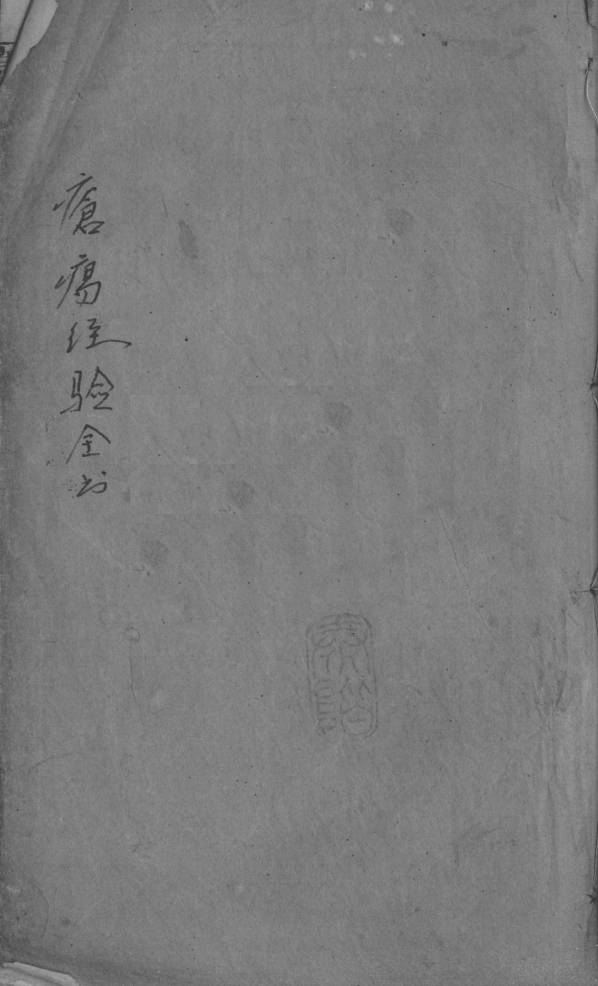 瘡瘍经驗全书